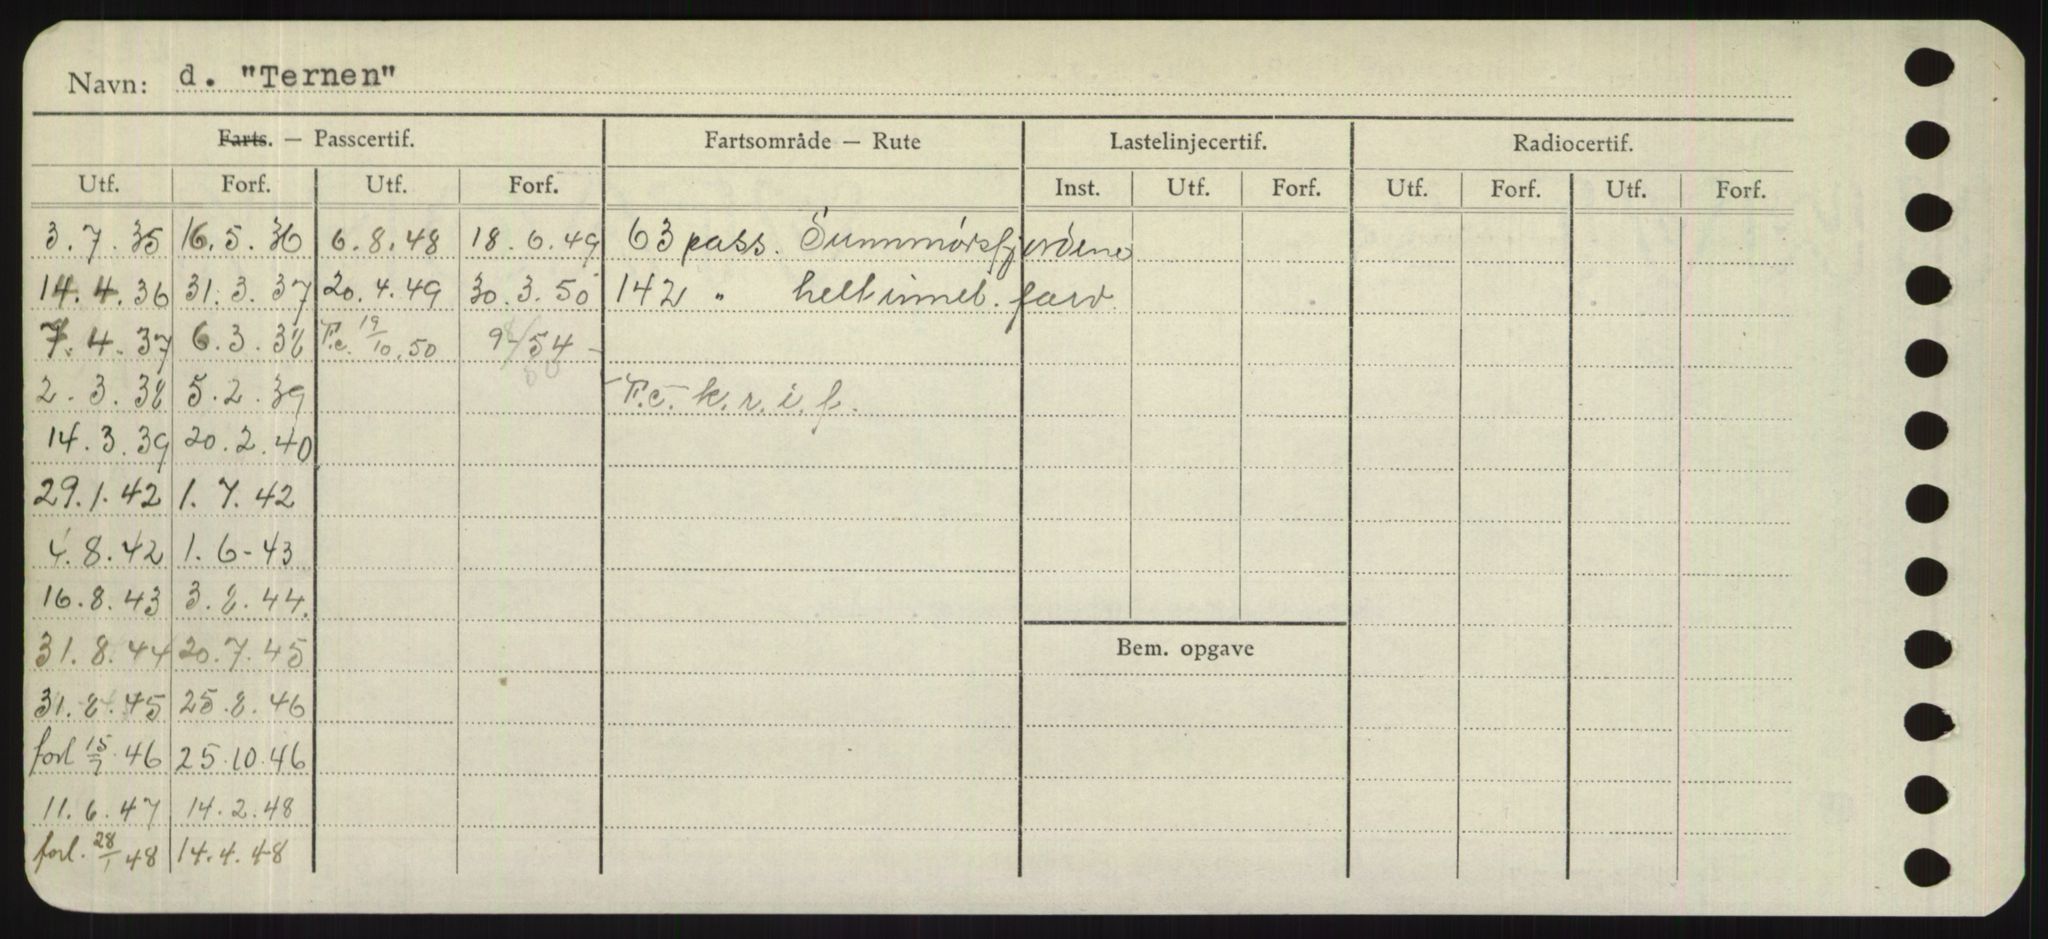 Navn: d. "Ternen"
Farts. — Passcertif. Fartsområde — Rute Lastelinjecertif. Radiocertif.
Utf. Forf. Utf. Forf. Inst. Utf. Forf. Utf. Forf. Utf. Forf.
3.7.35 16.5.36 6.8.48 18.6.49 63 pass. Sunnmørsfjordene
14.4.36 31.3.37 20.4.49 30.3.50 142 " helt innel. farv.
7.4.37 6.3.38 F.c. 19/10.50 /54
2.3.38 5.2.39 F.c. k.r.i.f.
14.3.39 20.2.40
29.1.42 1.7.42
4.8.42 1.6-43
16.8.43 3.8.44.
31.8.44 20.7.45
Bem. opgave
31.8.45 25.8.46
forl 15/7.46 25.10.46
11.6.47 14.2.48
forl. 28/1 48 14.4.48